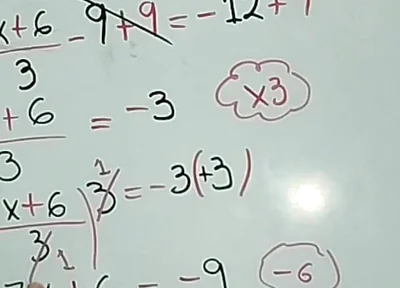 x+6/3 - 9 + 9 = -12 +
+ 6/3 = -3 ×3
x+6/3 ) 3 1 = -3 (+3)
1
= -9 -6